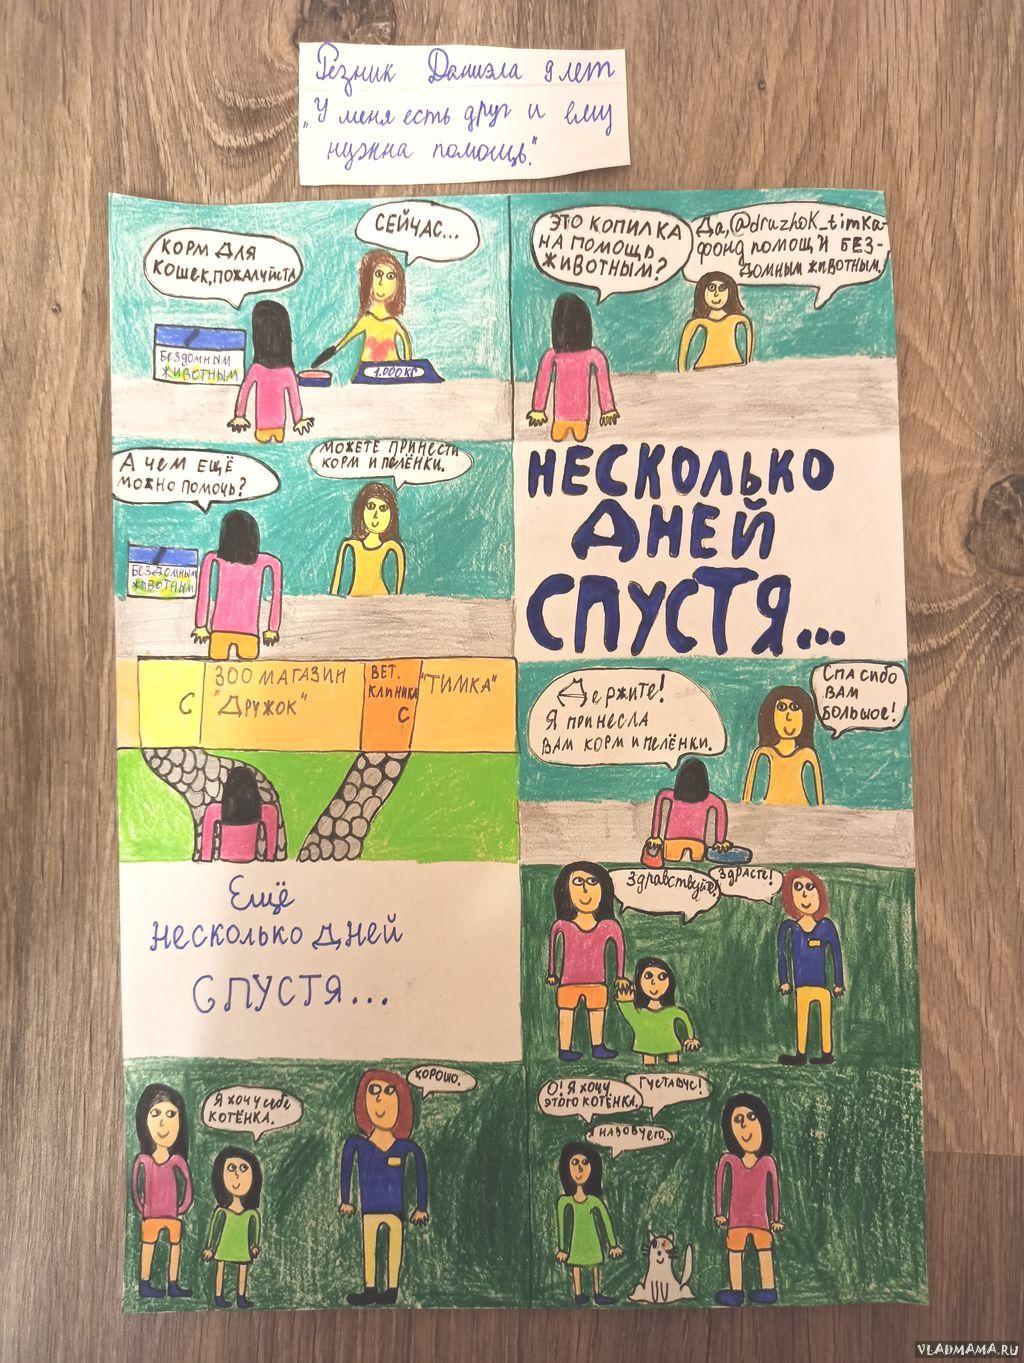 Резник Даниэла 9 лет
"У меня есть друг и ему
нужна помощь."
КОРМ ДЛЯ
КОШЕК, ПОЖАЛУЙСТА
СЕЙЧАС...
БЕЗДОМНЫМ
ЖИВОТНЫМ
1.000КГ
ЭТО КОПИЛКА
НА ПОМОЩЬ
ЖИВОТНЫМ?
Да, @druzhok_timka-
ФОНД ПОМОЩИ БЕЗ-
ДОМНЫМ ЖИВОТНЫМ.
А ЧЕМ ЕЩЁ
МОЖНО ПОМОЧЬ?
МОЖЕТЕ ПРИНЕСТИ
КОРМ И ПЕЛЁНКИ.
БЕЗДОМНЫМ
ЖИВОТНЫМ
НЕСКОЛЬКО
ДНЕЙ
СПУСТЯ...
С
ЗОО МАГАЗИН
"ДРУЖОК"
ВЕТ.
КЛИНИКА
С
"ТИМКА"
Держите!
Я ПРИНЕСЛА
ВАМ КОРМ И ПЕЛЁНКИ.
СПАСИБО
ВАМ
БОЛЬШОЕ!
Ещё
НЕСКОЛЬКО ДНЕЙ
СПУСТЯ...
ЗДРАВСТВУЙТЕ!
ЗДРАСТЕ!
Я ХОЧУ СЕБЕ
КОТЁНКА.
ХОРОШО.
О! Я ХОЧУ
ЭТОГО КОТЁНКА.
ГУСТАВУС!
Я НАЗОВУ ЕГО...
VLADMAMA.RU